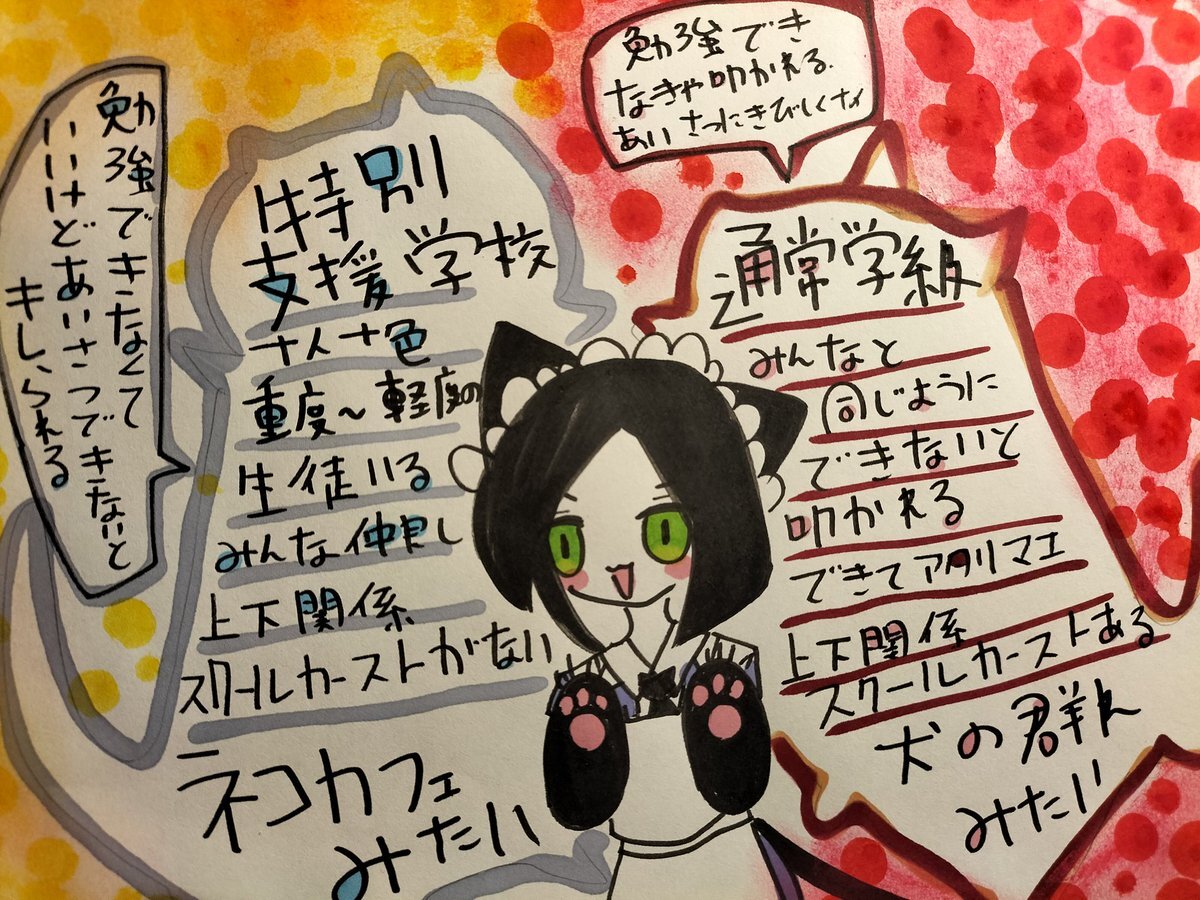 勉強できなくて
いいけどあいさつできないと
キレられる
特別
支援学校
十人十色
重度～軽度の
生徒いる
みんな仲良し
上下関係
スクールカーストがない
ネコカフェ
みたい
勉強でき
なきゃ叩かれる.
あいさつにきびしくナイ
通常学級
みんなと
同じように
できないと
叩かれる
できてアタリマエ
上下関係
スクールカーストある
犬の群れ
みたい